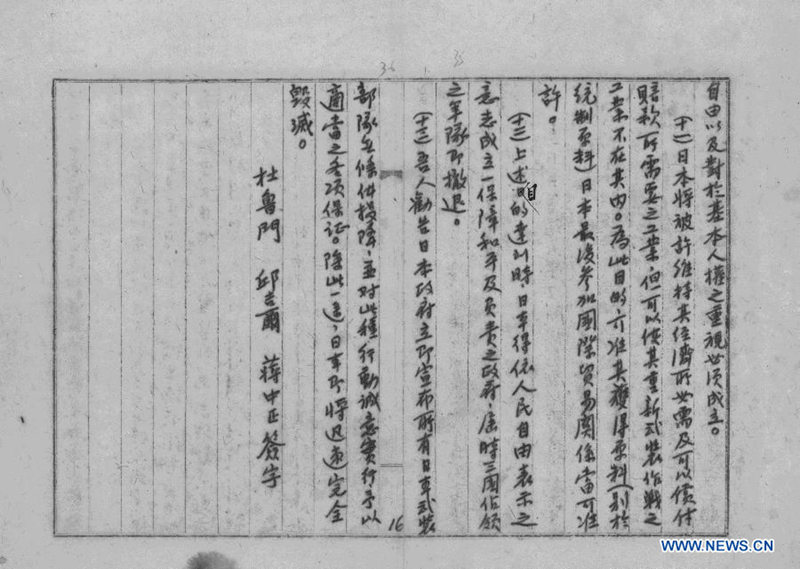 自由以及對於基本人權之重視必须成立。
(十一)日本将被許维持其经濟所必需及可以償付
賠款所需要之工業,但可以使其重新武装作戰之
工業不在其内。為此目的,可准其獲得原料(别於
統制原料)日本最後参加國際貿易関係當可准
許。
(十二)上述目的達到時,日本得依人民自由表示之
意志成立一保障和平及负责之政府,届時三國佔領
之军隊即撤退。
(十三)吾人勸告日本政府立即宣布所有日本武装
部隊無條件投降,並对此種行動誠意實行予以
適當之各项保証。除此一途,日本即将迅速完全
毀滅。
杜魯門 邱吉爾 蒋中正簽字
16
36
WWW.NEWS.CN